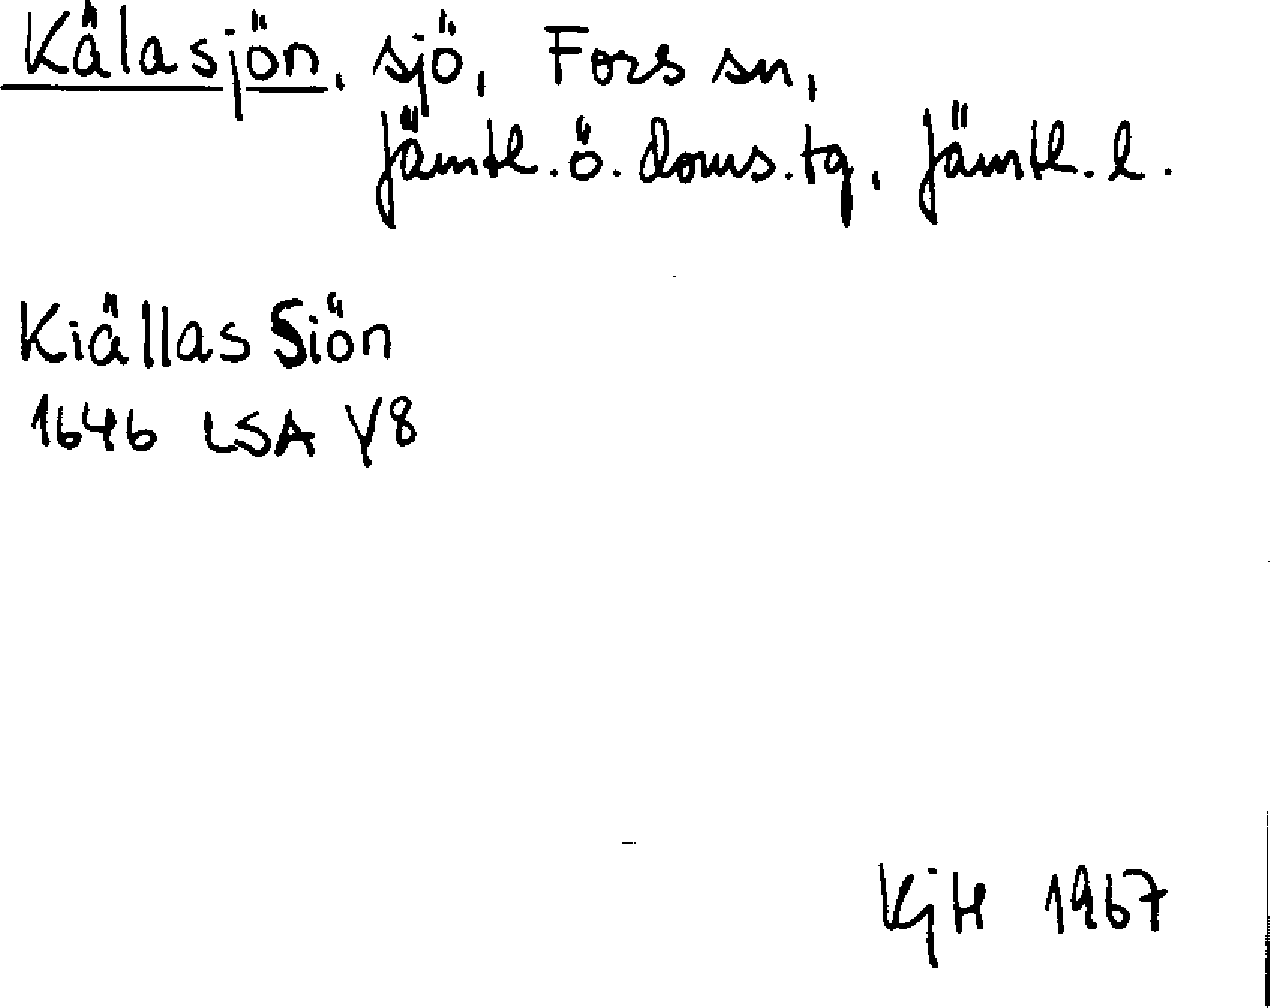 Kälasjön, sjö, Fors sn,
Jämtl. ö. doms. tg, Jämtl. l.
Kiällas Siön
1646 LSA Y8
KjH 1967